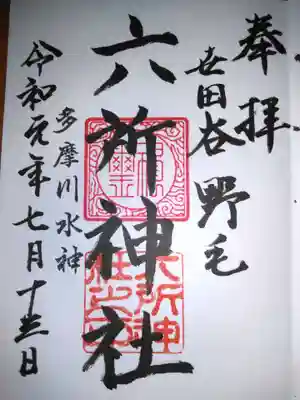 奉拝
世田谷野毛
六所神社
多摩川水神
令和元年七月十三日